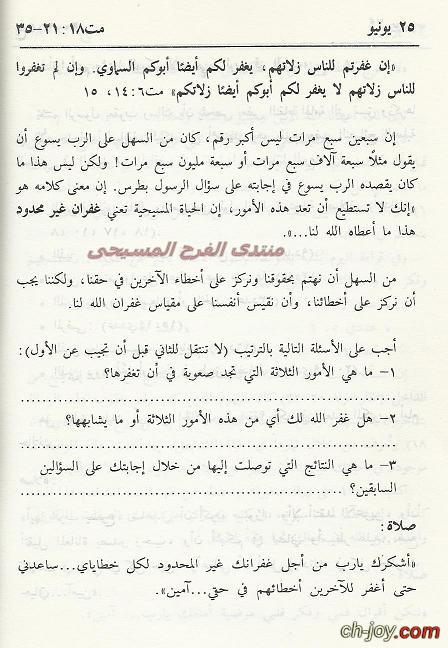 ٢٥ يونيو
مت١٨: ٢١-٣٥
«إن غفرتم للناس زلاتهم، يغفر لكم أيضًا أبوكم السماوي. وإن لم تغفروا
للناس زلاتهم لا يغفر لكم أبوكم أيضًا زلاتكم» مت٦: ١٤، ١٥
إن سبعين سبع مرات ليس أكبر رقم، كان من السهل على الرب يسوع أن
يقول مثلًا سبعة آلاف سبع مرات أو سبعة مليون سبع مرات! ولكن ليس هذا ما
كان يقصده الرب يسوع في إجابته على سؤال الرسول بطرس. إن معنى كلامه هو
«إنك لا تستطيع أن تعد هذه الأمور، إن الحياة المسيحية تعني غفران غير محدود
هذا ما أعطاه الله لنا...».
منتدى الفرح المسيحى
من السهل أن نهتم بحقوقنا ونركز على أخطاء الآخرين في حقنا، ولكننا يجب
أن نركز على أخطائنا، وأن نقيس أنفسنا على مقياس غفران الله لنا.
أجب على الأسئلة التالية بالترتيب (لا تنتقل للثاني قبل أن تجيب عن الأول):
١- ما هي الأمور الثلاثة التي تجد صعوبة في أن تغفرها؟
٢- هل غفر الله لك أي من هذه الأمور الثلاثة أو ما يشابهها؟
٣- ما هي النتائج التي توصلت إليها من خلال إجابتك على السؤالين
السابقين؟
صلاة:
«أشكرك يارب من أجل غفرانك غير المحدود لكل خطاياي... ساعدني
حتى أغفر للآخرين أخطائهم في حقي... آمين».
ch-joy.com